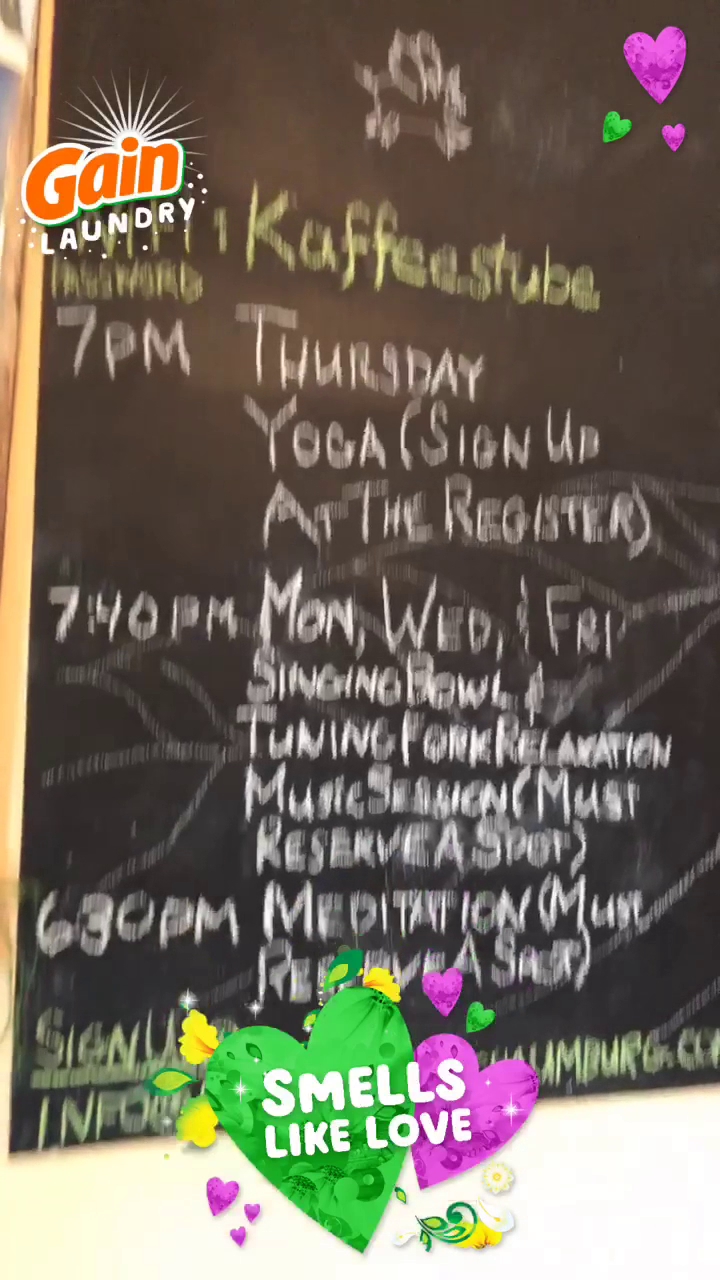 Gain
LAUNDRY
Kaffeestube
PASSWORD
7PM THURSDAY
YOGA (SIGN UP
AT THE REGISTER)
7:40PM MON, WED, & FRI
SINGING BOWL &
TUNING FORK RELAXATION
MUSIC SESSION (MUST
RESERVE A SPOT)
630PM MEDITATION (MUST
RESERVE A SPOT)
SIGN UP
INFO
SMELLS
LIKE LOVE